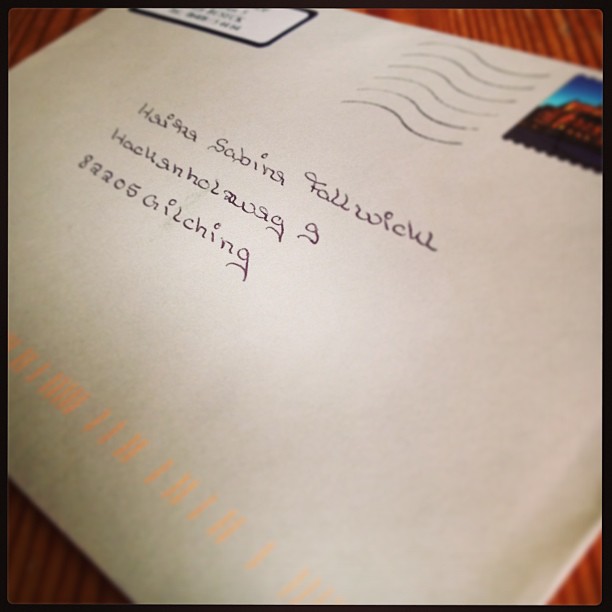 Sabine Fallwickl
Hackenholzweg 9
82205 Gilching